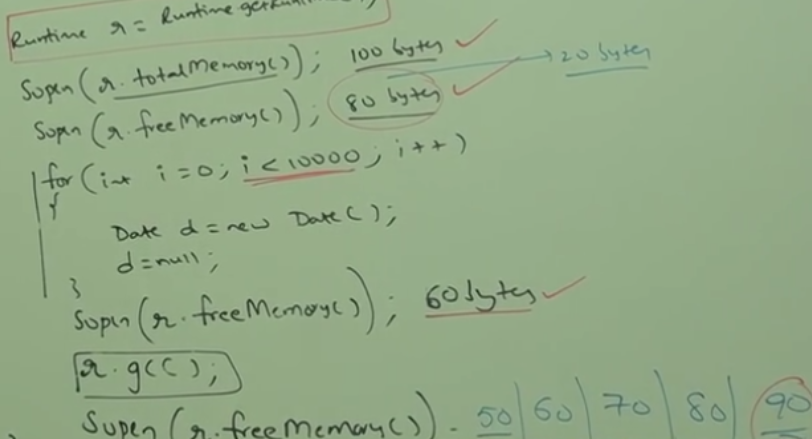 Runtime r = Runtime
Sopln(r.totalMemory()); 100 bytes
Sopln(r.freeMemory()); 80 bytes → 20 bytes
for(int i=0; i<10000; i++)
{
Date d=new Date();
d=null;
}
Sopln(r.freeMemory()); 60 bytes
r.gc();
Sopln(r.freeMemory()). 50|60|70|80|90